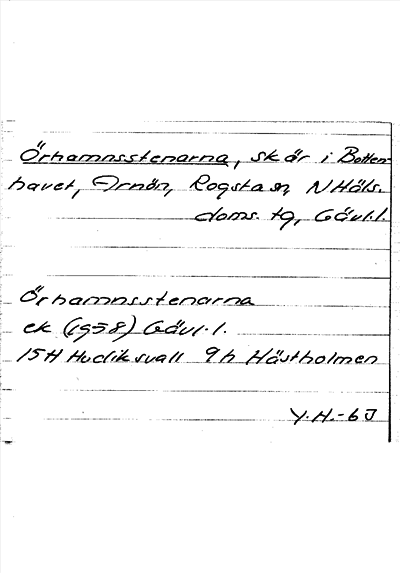 Örhamnsstenarna, skär i Botten-
havet, Arnön, Rogsta sn, N Häls.
doms. tg, Gävl.l.
Örhamnsstenarna
ek (1958) Gävl.l.
15H Hudiksvall 9h Hästholmen
Y.H.-6